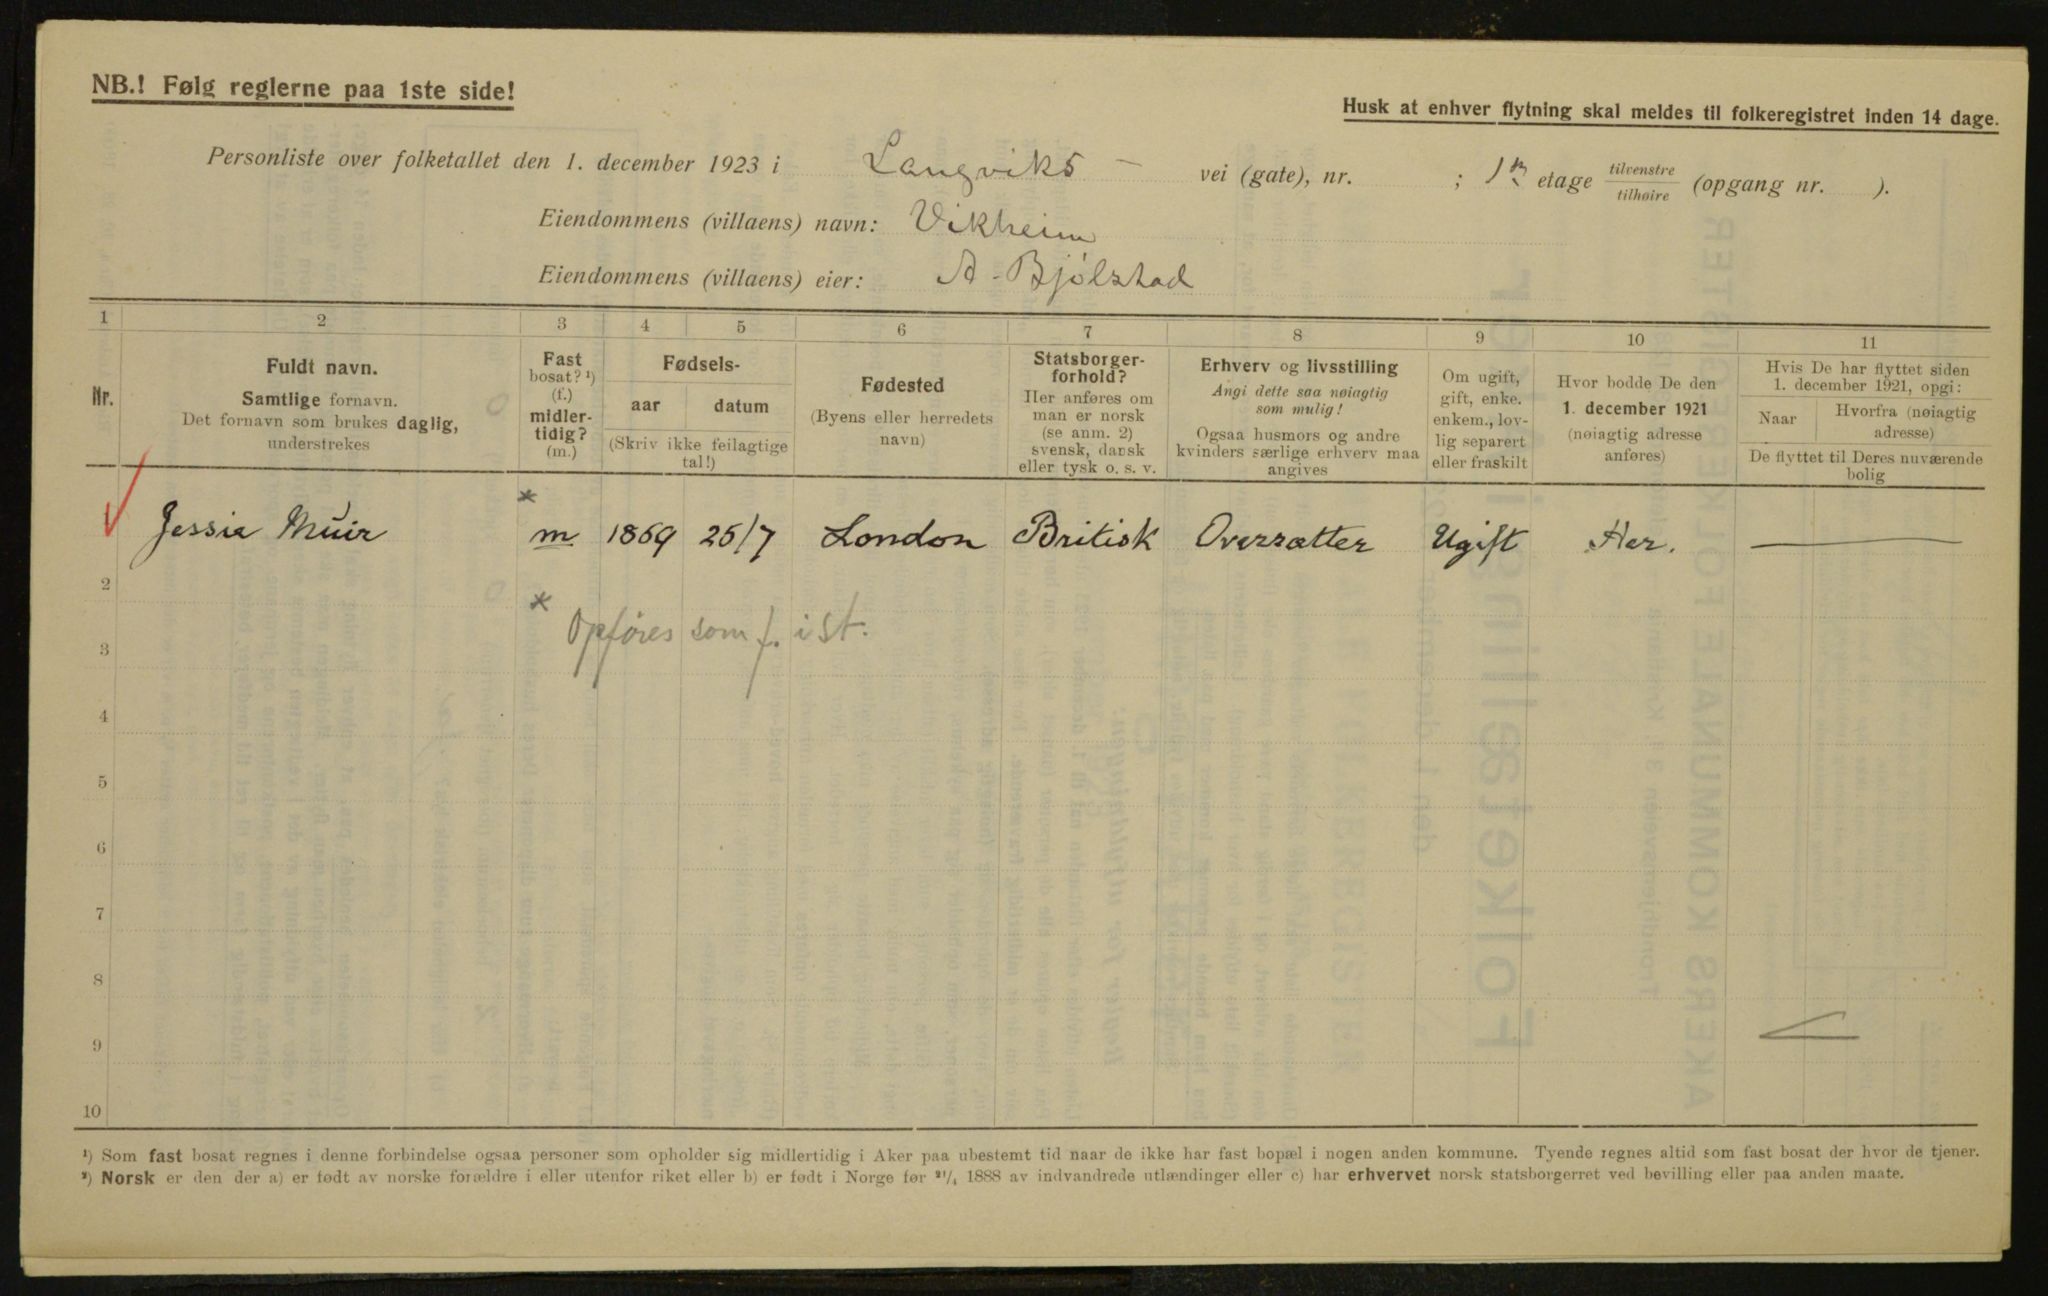 NB.! Følg reglerne paa 1ste side!
Husk at enhver flytning skal meldes til folkeregistret inden 14 dage.
Personliste over folketallet den 1. december 1923 i Langviks – vei (gate), nr. ; 1ste etage tilvenstre/tilhøire (opgang nr. ).
Eiendommens (villaens) navn: Vikheim
Eiendommens (villaens) eier: A. Bjölstad
1 2 3 4 5 6 7 8 9 10 11
Nr.
Fuldt navn.
Samtlige fornavn.
Det fornavn som brukes daglig,
understrekes
Fast
bosat? ¹)
(f.)
midler-
tidig?
(m.)
Fødsels-
aar datum
(Skriv ikke feilagtige
tal!)
Fødested
(Byens eller herredets
navn)
Statsborger-
forhold?
Her anføres om
man er norsk
(se anm. 2)
svensk, dansk
eller tysk o. s. v.
Erhverv og livsstilling
Angi dette saa nøiagtig
som mulig!
Ogsaa husmors og andre
kvinders særlige erhverv maa
angives
Om ugift,
gift, enke.
enkem., lov-
lig separert
eller fraskilt
Hvor bodde De den
1. december 1921
(nøiagtig adresse
anføres)
Hvis De har flyttet siden
1. december 1921, opgi:
Naar Hvorfra (nøiagtig
adresse)
De flyttet til Deres nuværende
bolig
1 Jessie Muir * m 1869 25/7 London Britisk Oversætter Ugift Her. —
2
* Opføres som f. i st.
3
4
5
6
7
8
9
10
¹) Som fast bosat regnes i denne forbindelse ogsaa personer som opholder sig midlertidig i Aker paa ubestemt tid naar de ikke har fast bopæl i nogen anden kommune. Tyende regnes altid som fast bosat der hvor de tjener.
²) Norsk er den der a) er født av norske forældre i eller utenfor riket eller b) er født i Norge før ²¹/₄ 1888 av indvandrede utlændinger eller c) har erhvervet norsk statsborgerret ved bevilling eller paa anden maate.